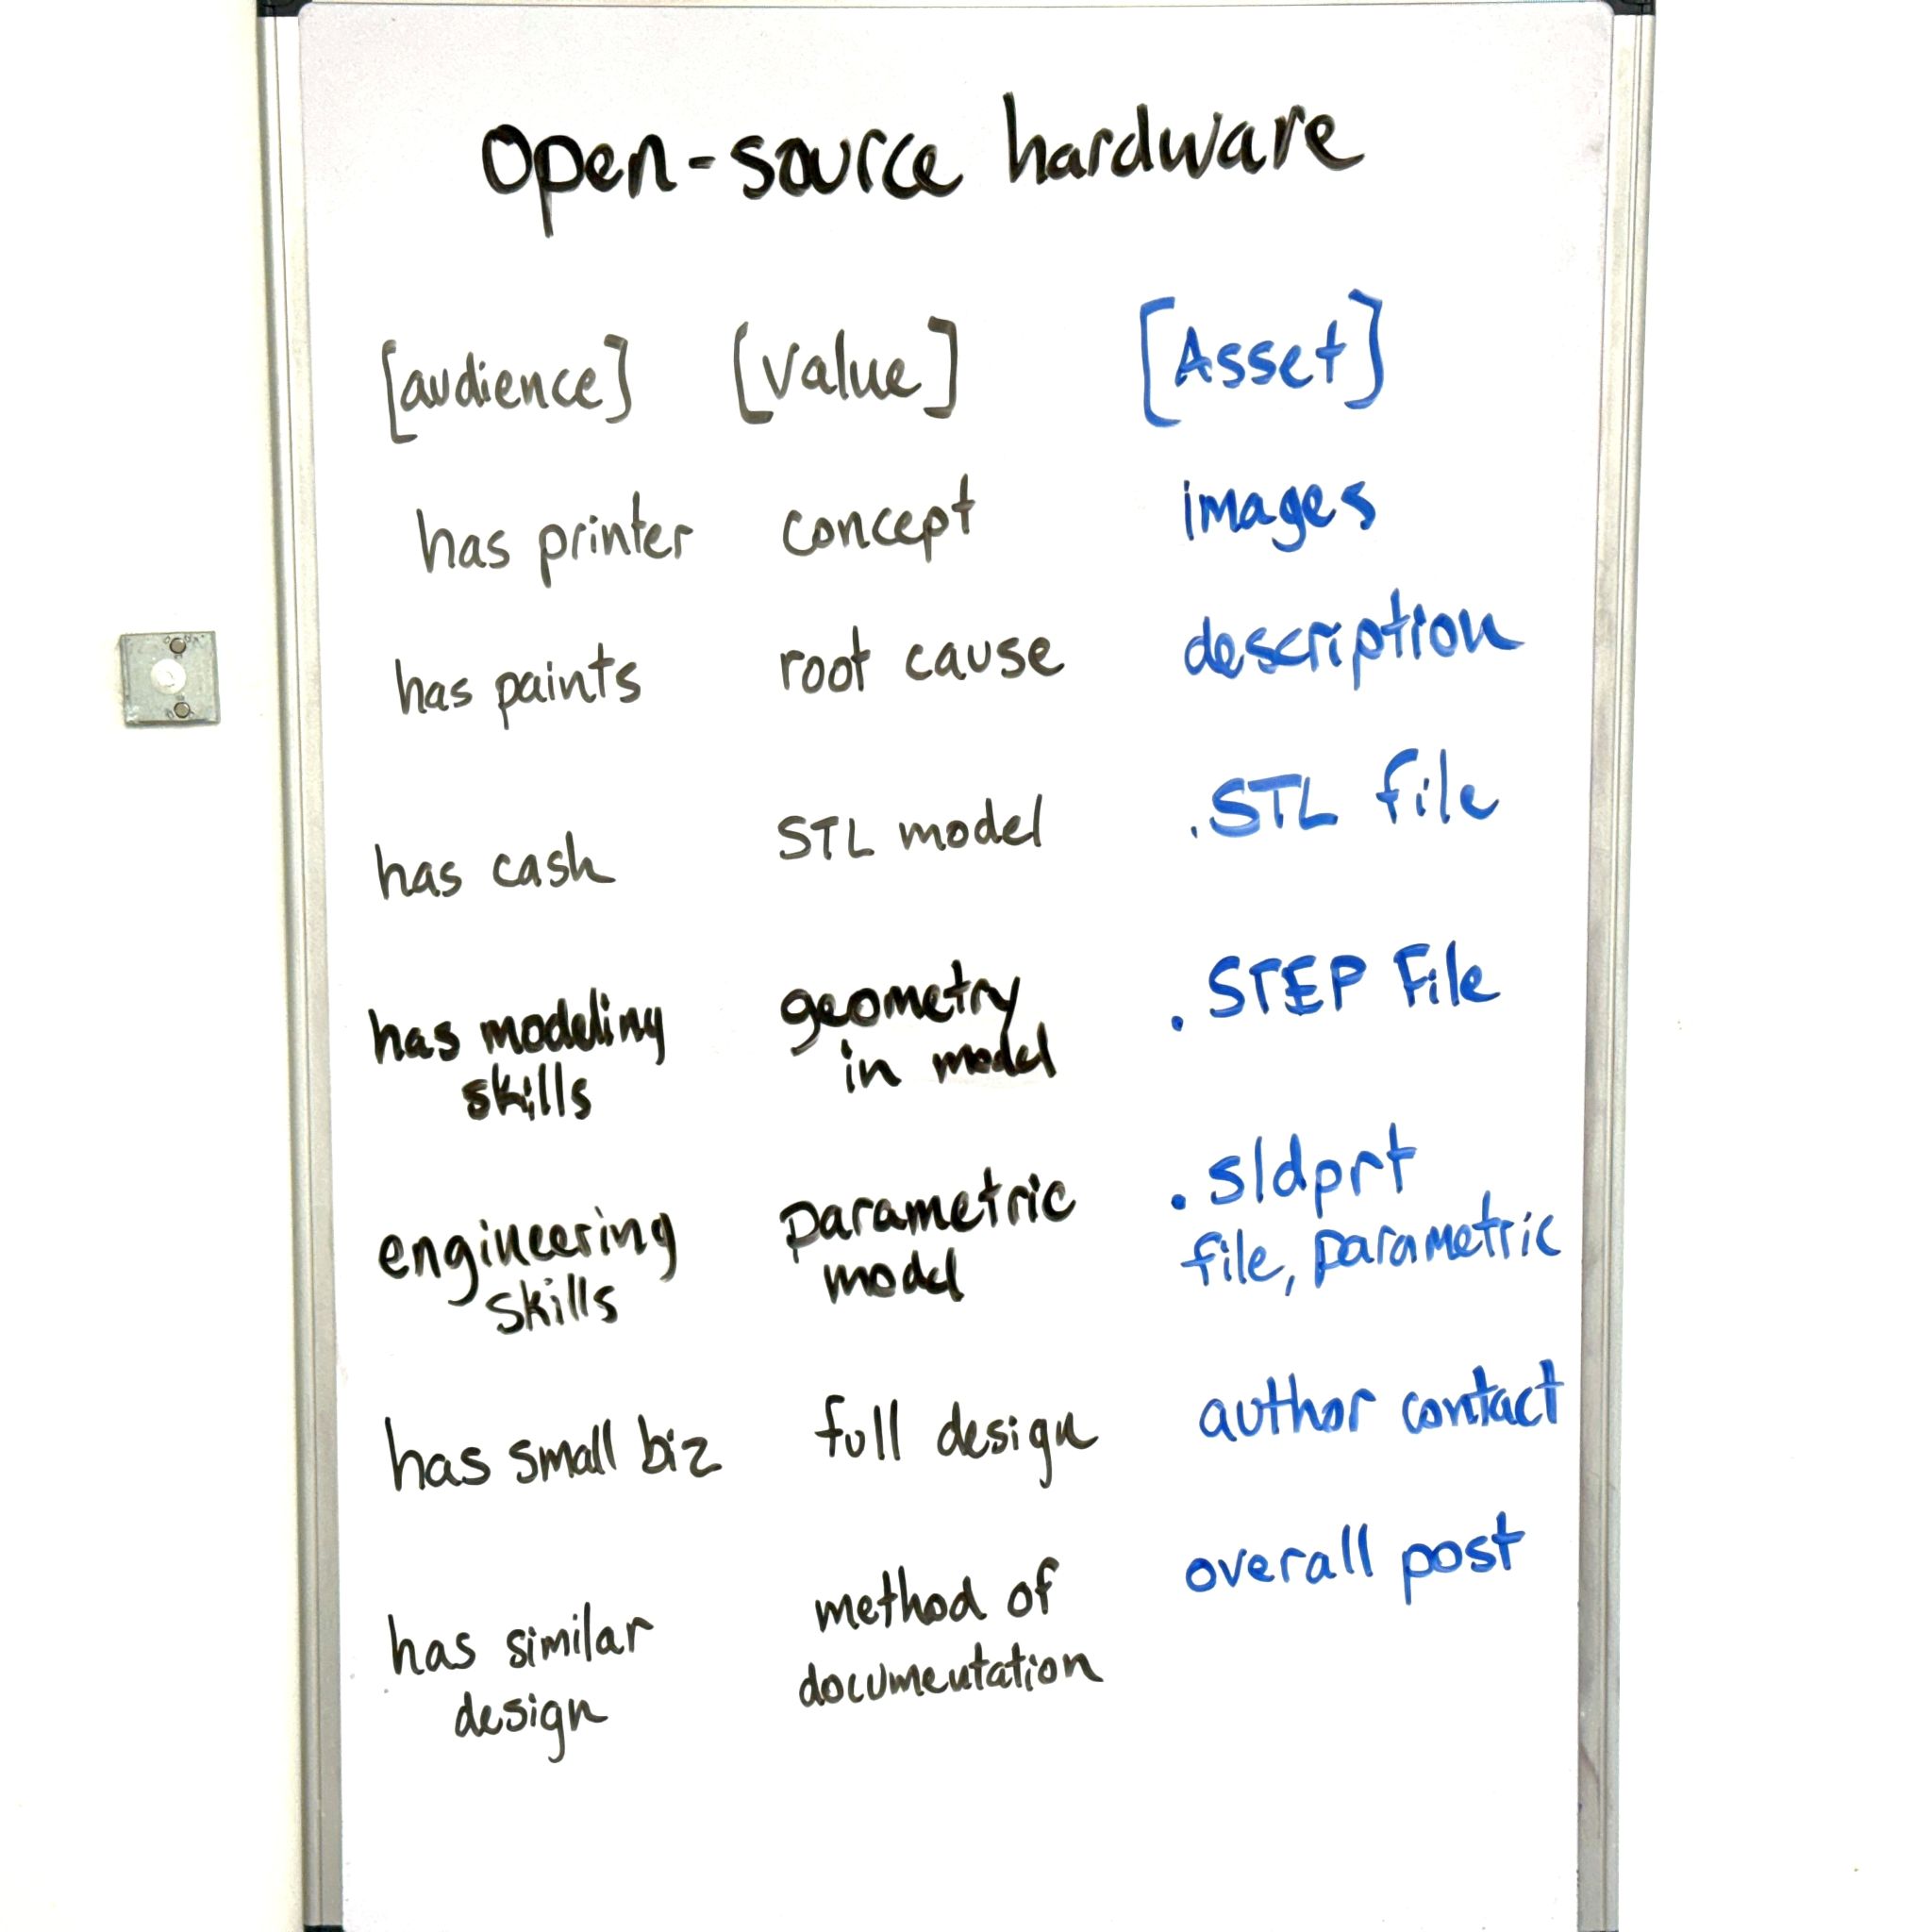 open-source hardware
[audience] [Value] [Asset]
has printer concept images
has paints root cause description
has cash STL model .STL file
has modeling geometry .STEP File
skills in model
engineering parametric .sldprt
skills model file, parametric
has small biz full design author contact
has similar method of overall post
design documentation